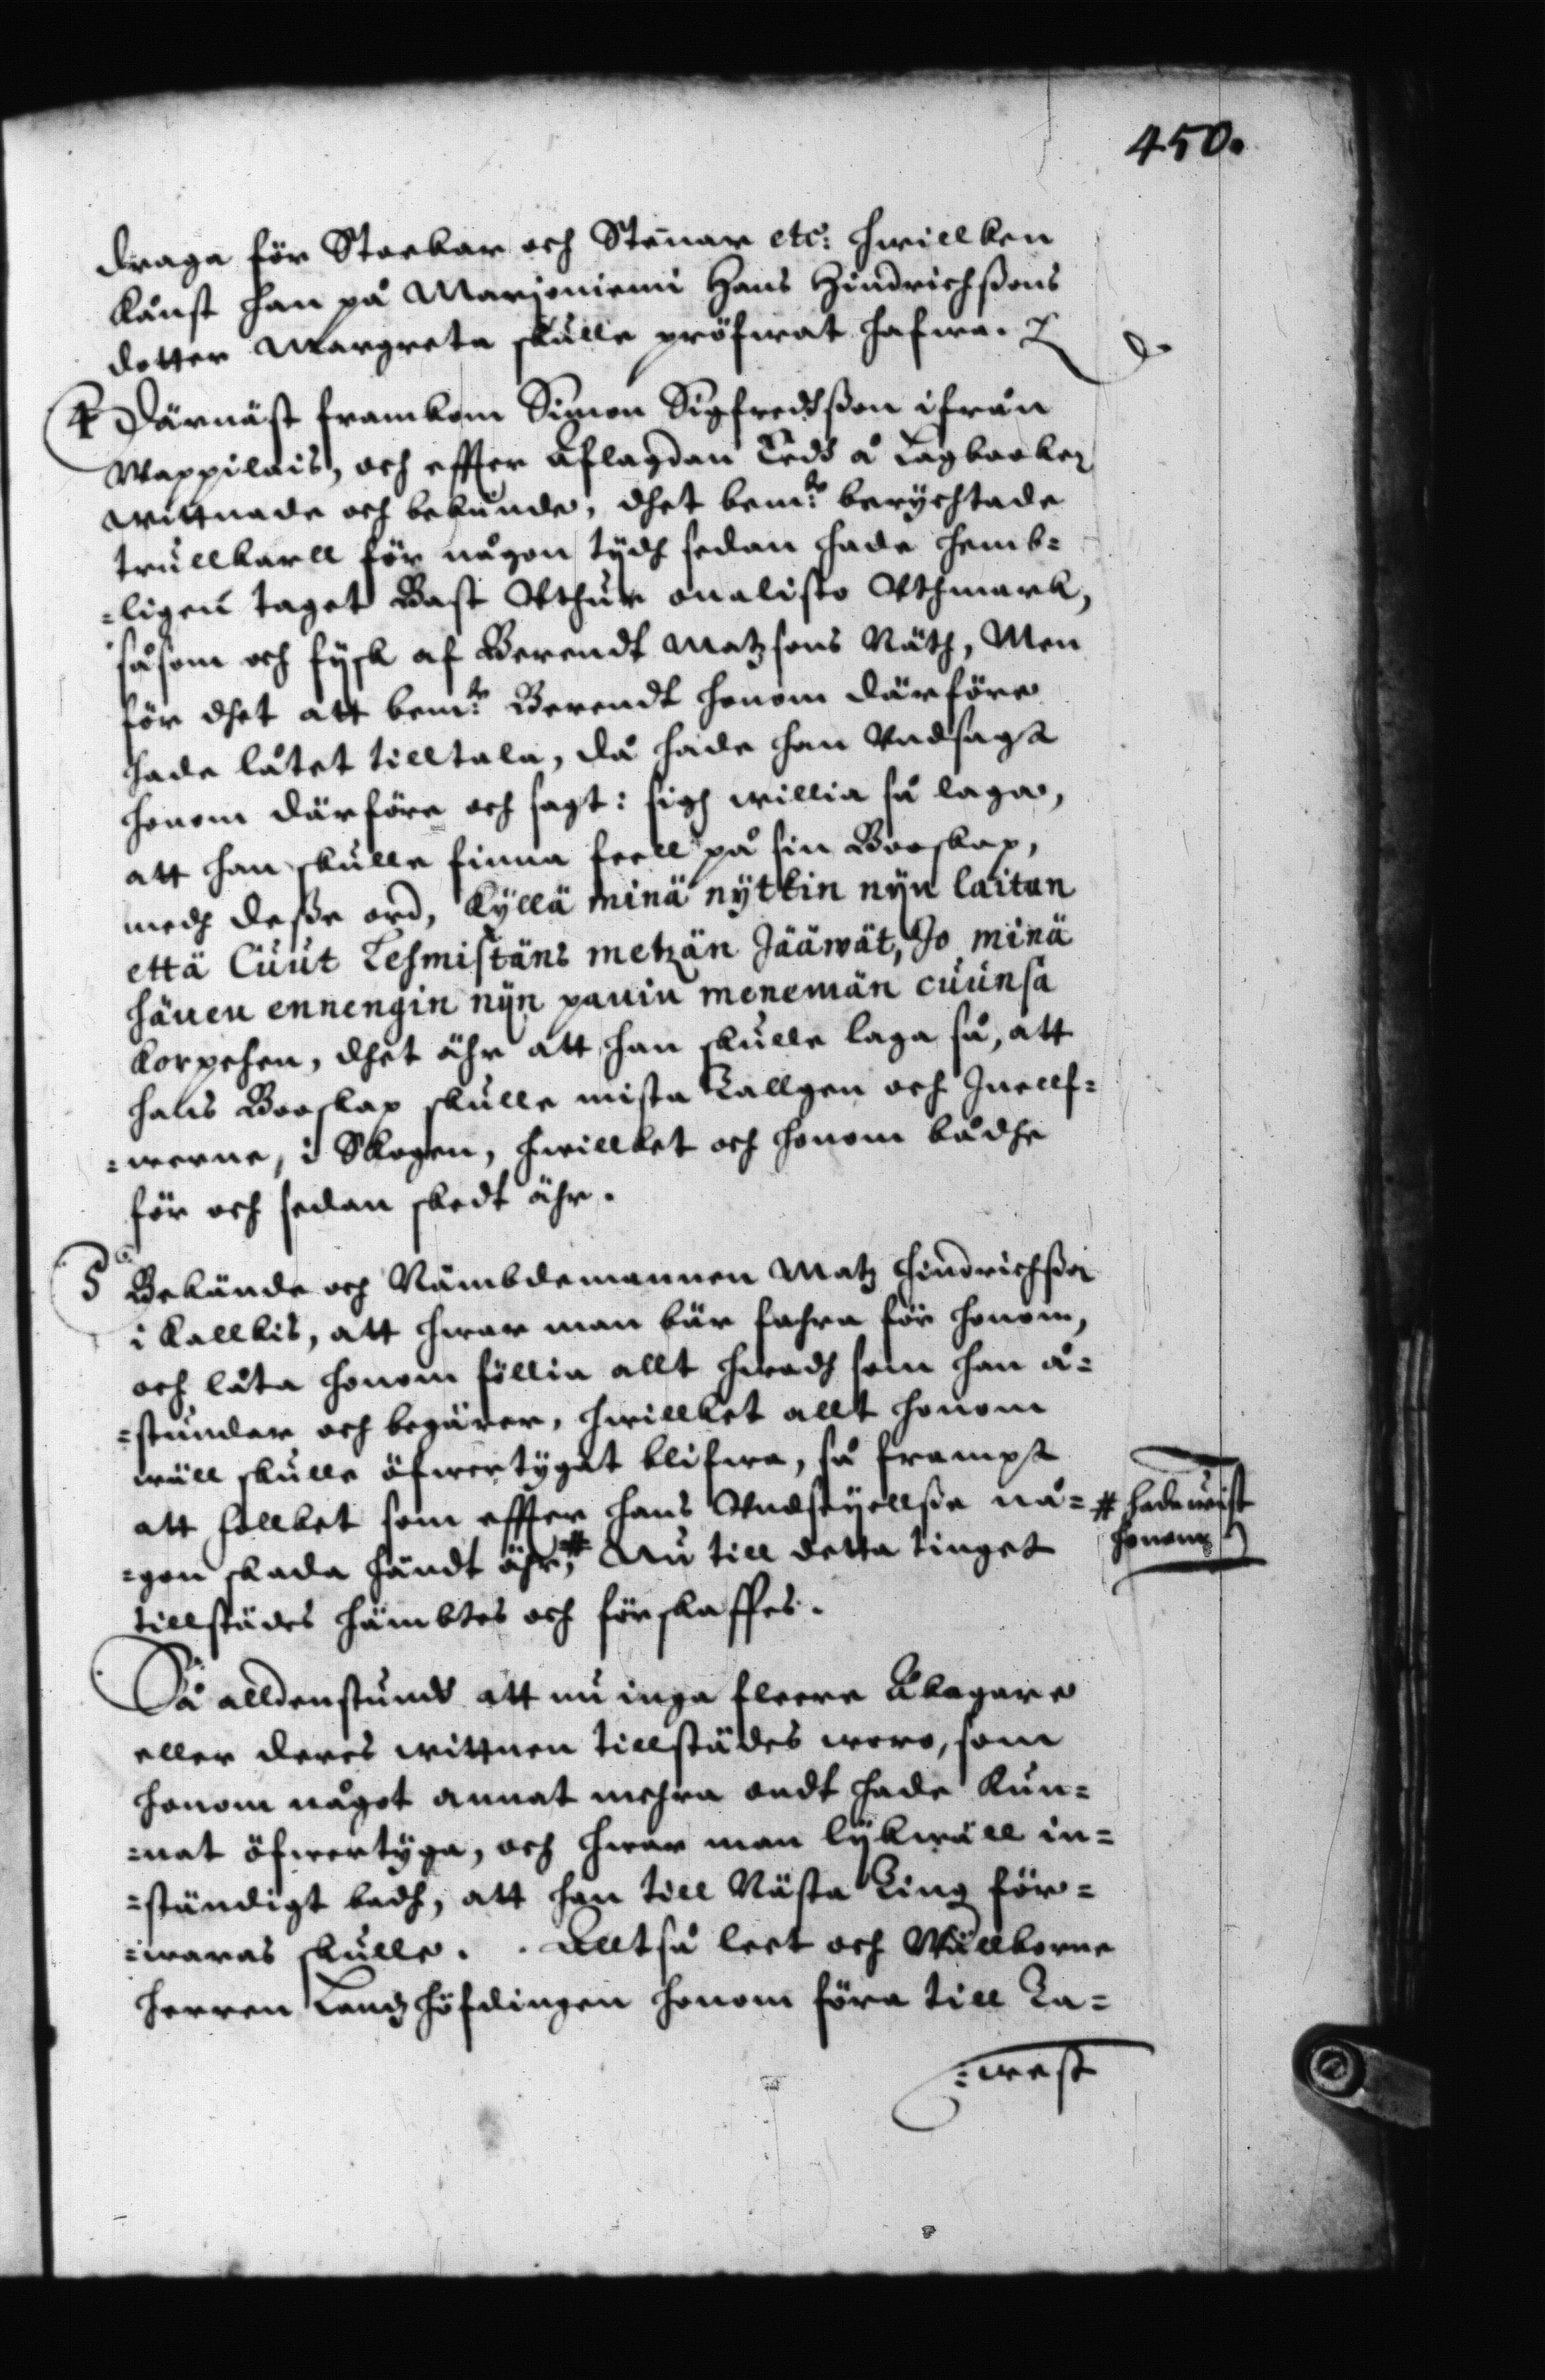 450.
draga för Stockar och Stenar etc: hwillken
kånst han på Marjoniemi Hans Hindrichßons
dotter Margreta skulle pröfwat hafwa.
4 Därnäst framkom Simon Sigfredßon ifrån
Wappilais, och effter aflagdan Eedh å Lagboken
wittnade och bekände, dhet bem:te berychtade
trullkarll för någon tydh sedan hade hemb=
=ligen taget Bast Uthur onalisto Uthmark,
såsom och fysk af Berendt Matzsons Näth, Men
för dhet att bem:te Berendt honom därföre
hade låtet tilltala, då hade han Undsagt
honom därföre och sagt: sigh willia så laga,
att han skulle finna feell på sin Booskap,
medh deße ord, Kyllä minä nytkin nyn laitan
että Cuut Lehmistäns metzän Jääwät, Jo minä
hänen ennengin nyn panin menemän cuunsa
korpehen, dhet ähr att han skulle laga så, att
hans Booskap skulle mista Tallgen och Inellf=
=werne, i Skogen, hwillket och honom bådhe
för och sedan skedt ähr.
5 Bekände och Nämbdemannen Matz Hindrichßon
i Kallkis, att hwar man bär fahra för honom,
och låta honom föllia allt hwadh som han å=
=stundar och begärer, hwillket allt honom
wäll skulle öfwertygat blifwa, så frampt
att follket som effter hans Undseyellße nå=
=gon skada händt ähr, # Nu till detta tinget
# hade wist
honom
tillstädes hämbtes och förskaffes.
Så alldenstundh att nu inga fleere Åklagare
eller deres wittnen tillstädes woro, som
honom något annat mehra ondt hade kun=
=nat öfwertyga, och hwar man lykwäll in=
=ständigt badh, att han till Nästa Ting för=
=waras skulle. Alltså leet och Wällborne
Herren Landzhöfdingen honom föra till Ta=
=west